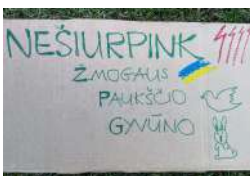 NEŠIURPINK
ŽMOGAUS
PAUKŠČIO
GYVŪNO